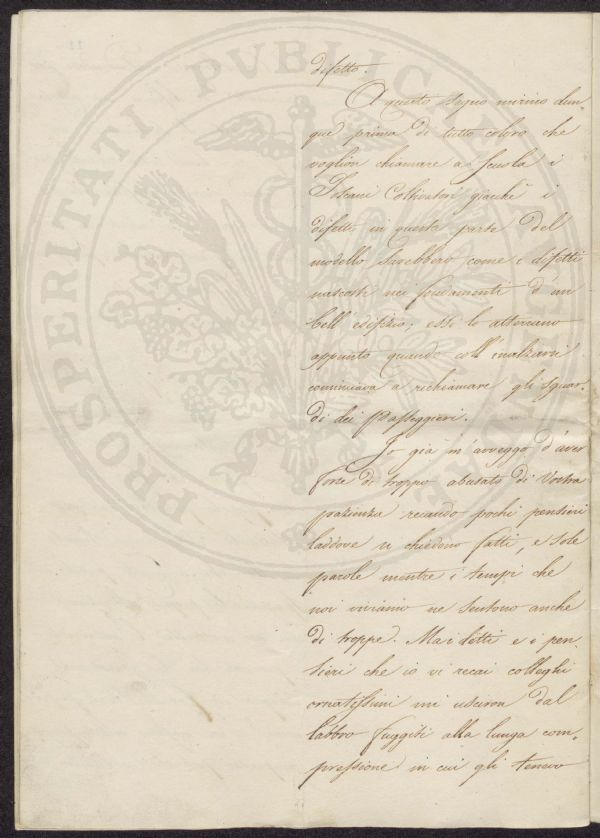 difetto.
A questo segno mirino dun-
que prima di tutto coloro che
voglion chiamare a Scuola i
Toscani Coltivatori giacchè i
difetti in questa parte del
modello sarebbero come i difetti
nascosti nei fondamenti d'un
bell'edifizio; essi lo atterrano
appunto quando coll'inalzarsi
cominciava a richiamare gli sguar-
di dei Passeggieri.
Io già m'avveggo d'aver
forse di troppo abusato di Vostra
pazienza recando pochi pensieri
laddove si chiedono fatti, e sole
parole mentre i tempi che
noi viviamo ne sentono anche
di troppe. Ma i detti e i pen-
sieri che io vi recai colleghi
ornatissimi mi usciron dal
labbro fuggiti alla lunga com-
pressione in cui gli tenevo
PROSPERITATI PVBLICAE